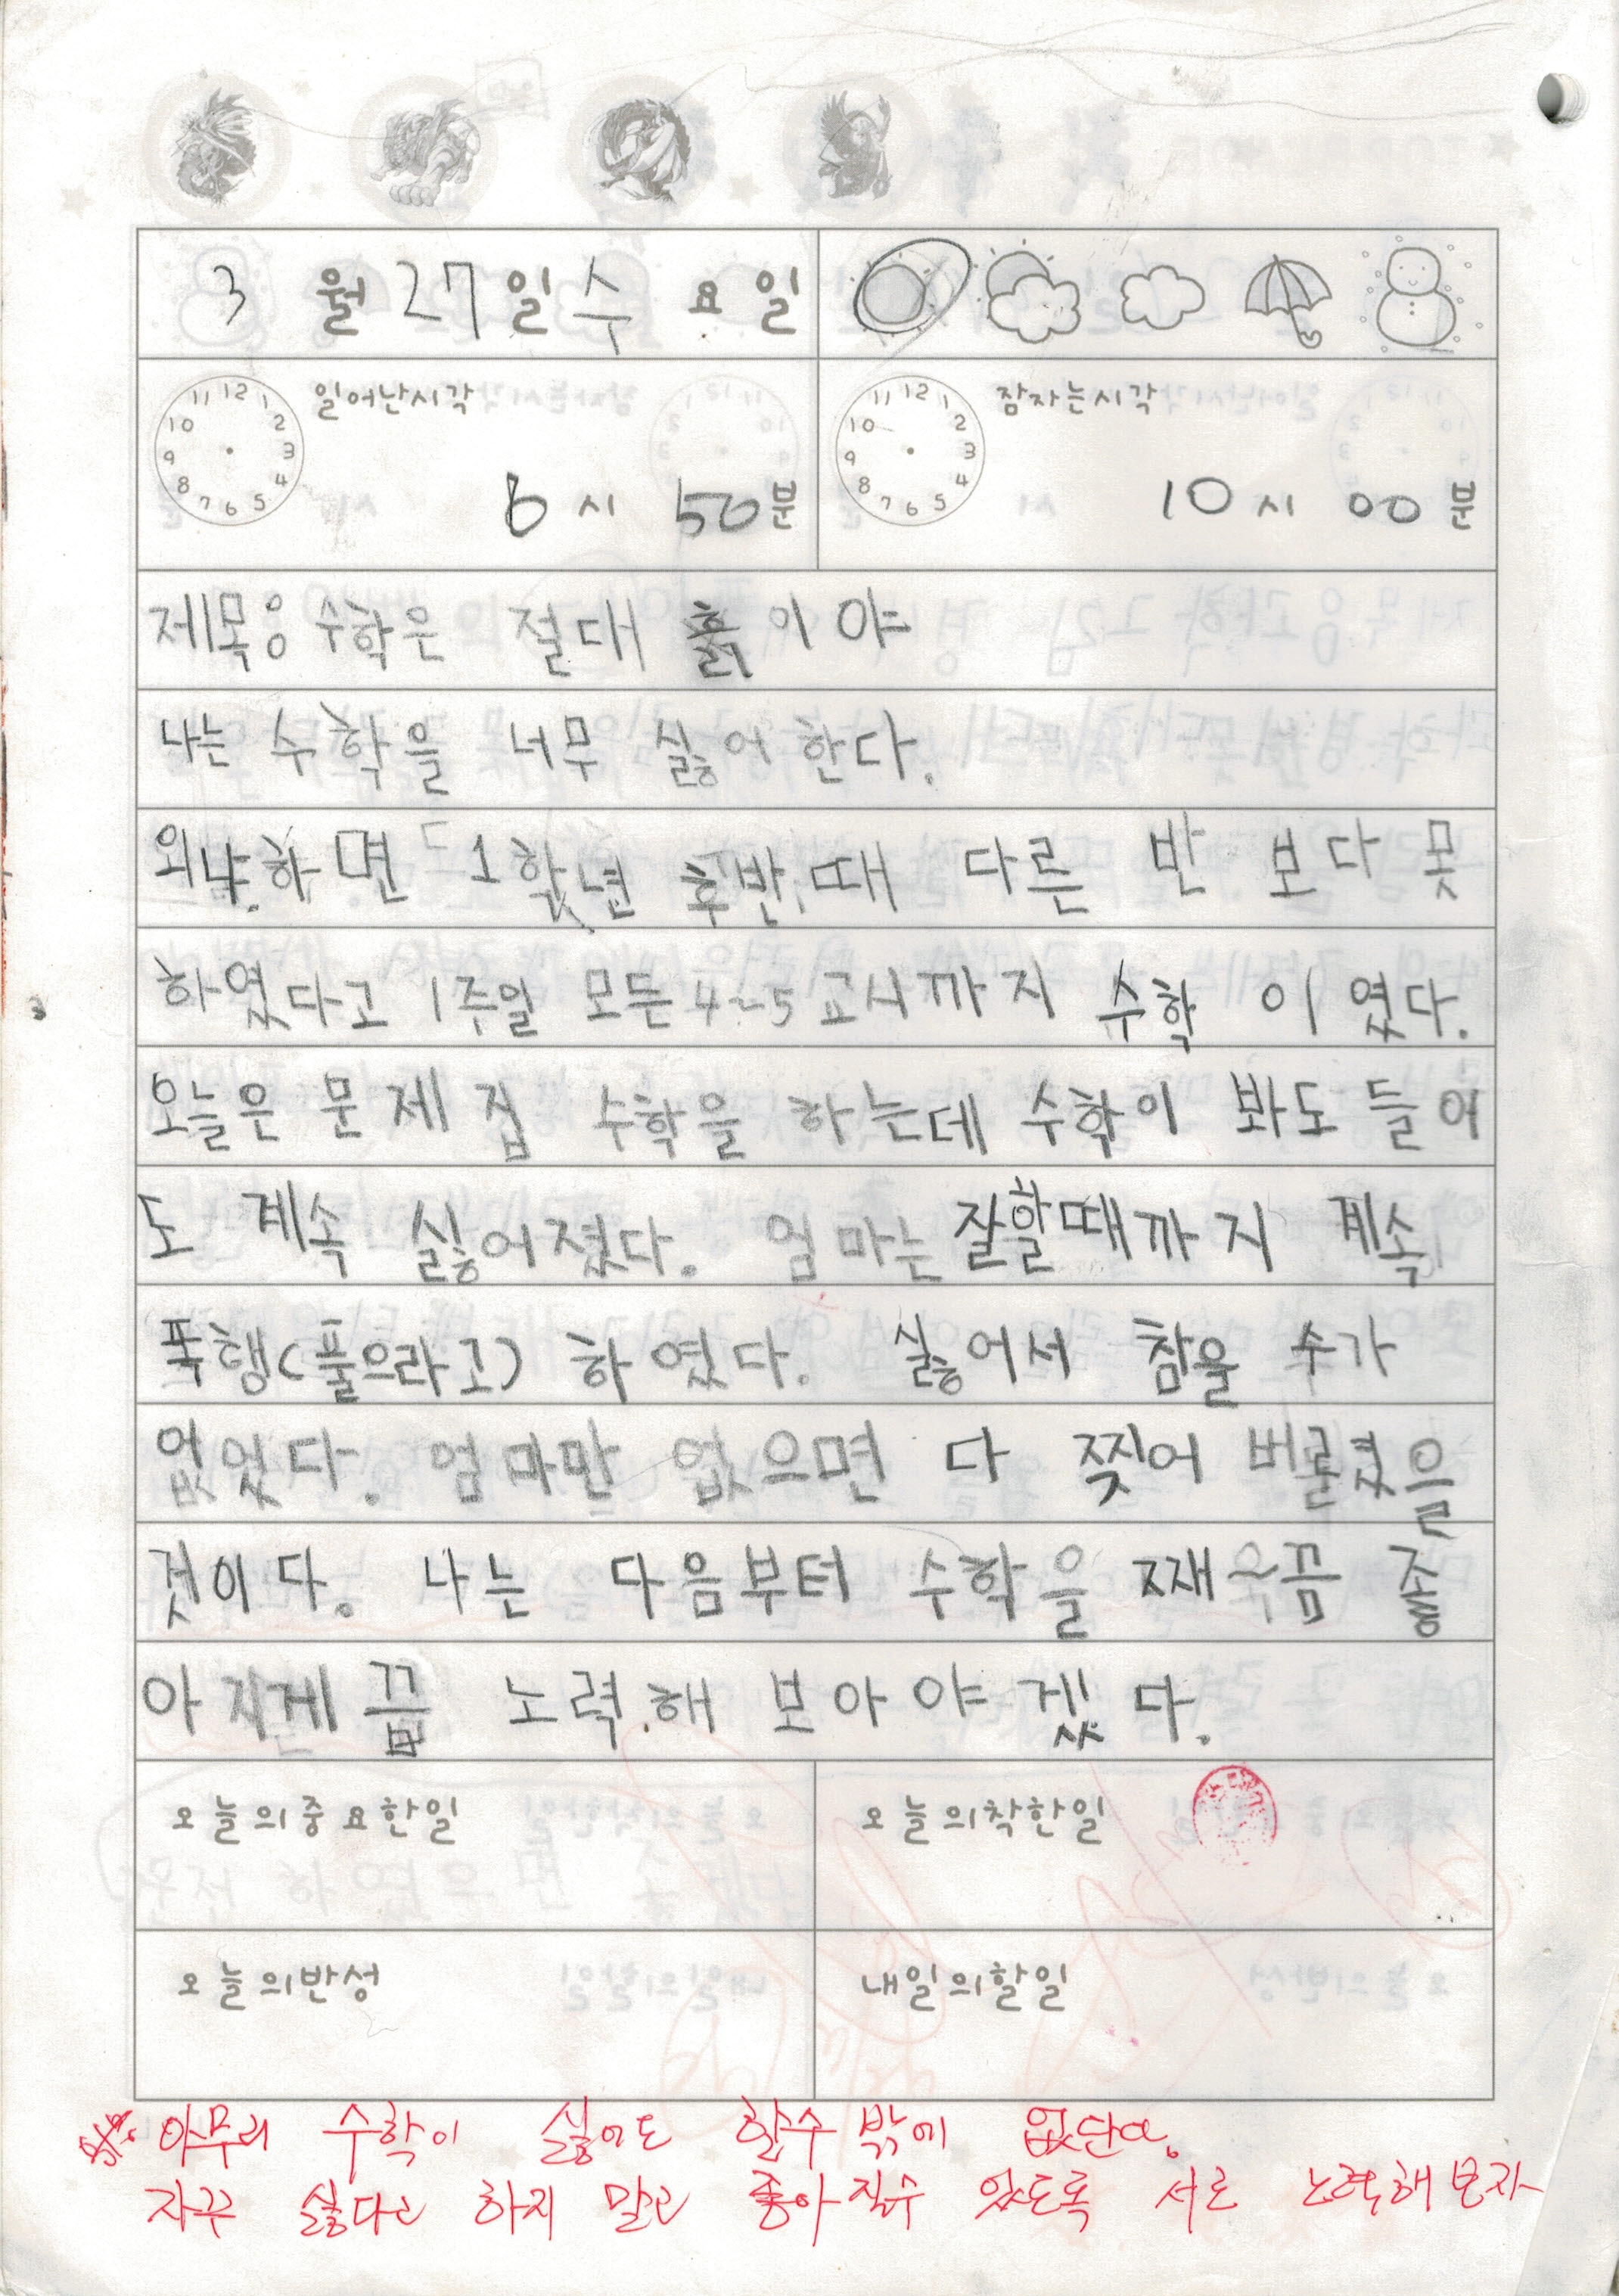 3월 27일 수요일
일어난시각
6시 50분
잠자는시각
10시 00분
제목: 수학은 절대 흙이야
나는 수학을 너무 싫어 한다.
외냐.하면 1학년 후반때 다른 반 보다 못
하였다고 1주일 모든 4~5교시까지 수학 이 였다.
오늘은 문제 집 수학을 하는데 수학이 봐도 들어
도 계속 싫어졌다. 엄마는 잘할때까지 계속
폭행(풀으라고) 하였다. 싫어서 참을 수가
없었다. 엄마만 없으면 다 찢어 버렸을
것이다. 나는 다음부터 수학을 째~끔 좋
아지게 끔 노력.해 보아야겠다.
오늘의중요한일
오늘의착한일
오늘의반성
내일의할일
아무리 수학이 싫어도 할수밖에 없단다.
자꾸 싫다고 하지 말고 좋아질수 있도록 서로 노력해보자